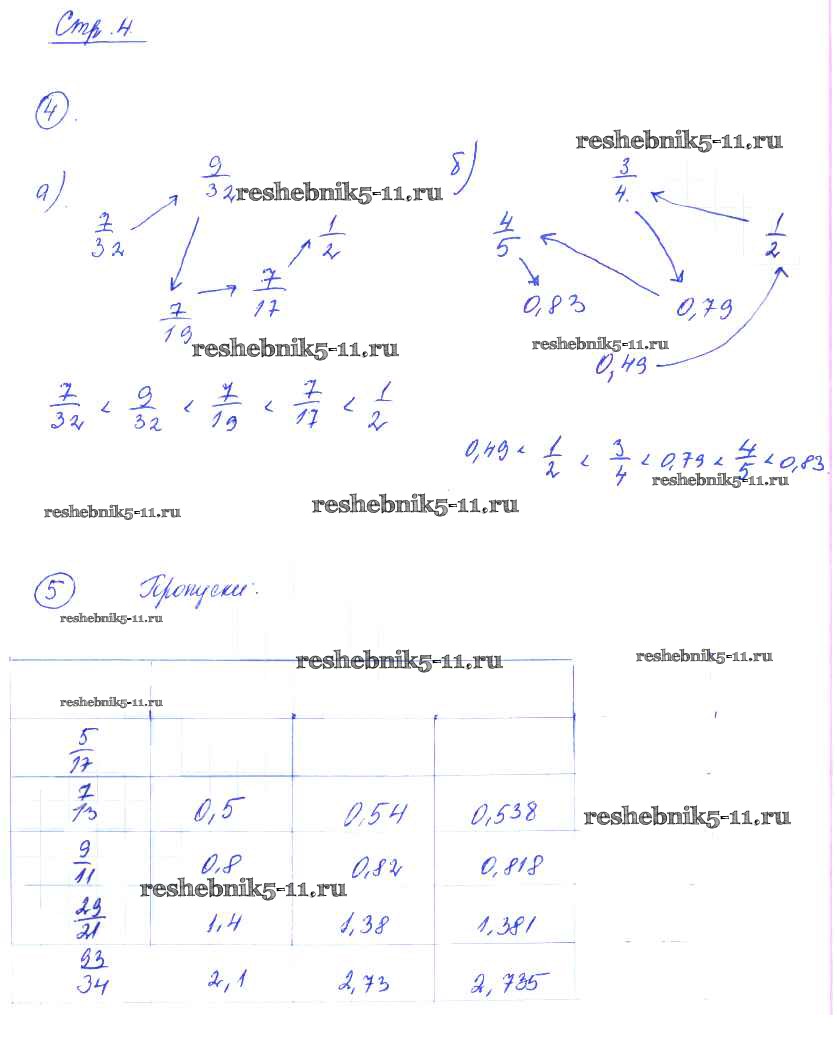 Стр. 4.
4.
а) 7/32 9/32 7/19 7/17 1/2
reshebnik5-11.ru
reshebnik5-11.ru
б) 3/4 4/5 1/2 0,83 0,79 0,49
reshebnik5-11.ru
reshebnik5-11.ru
7/32 < 9/32 < 7/19 < 7/17 < 1/2
0,49 < 1/2 < 3/4 < 0,79 < 4/5 < 0,83
reshebnik5-11.ru
reshebnik5-11.ru
reshebnik5-11.ru
5 Пропуски:
reshebnik5-11.ru
reshebnik5-11.ru
reshebnik5-11.ru
reshebnik5-11.ru
5/17
7/13 0,5 0,54 0,538
reshebnik5-11.ru
9/11 0,8 0,82 0,818
reshebnik5-11.ru
29/21 1,4 1,38 1,381
93/34 2,1 2,73 2,735